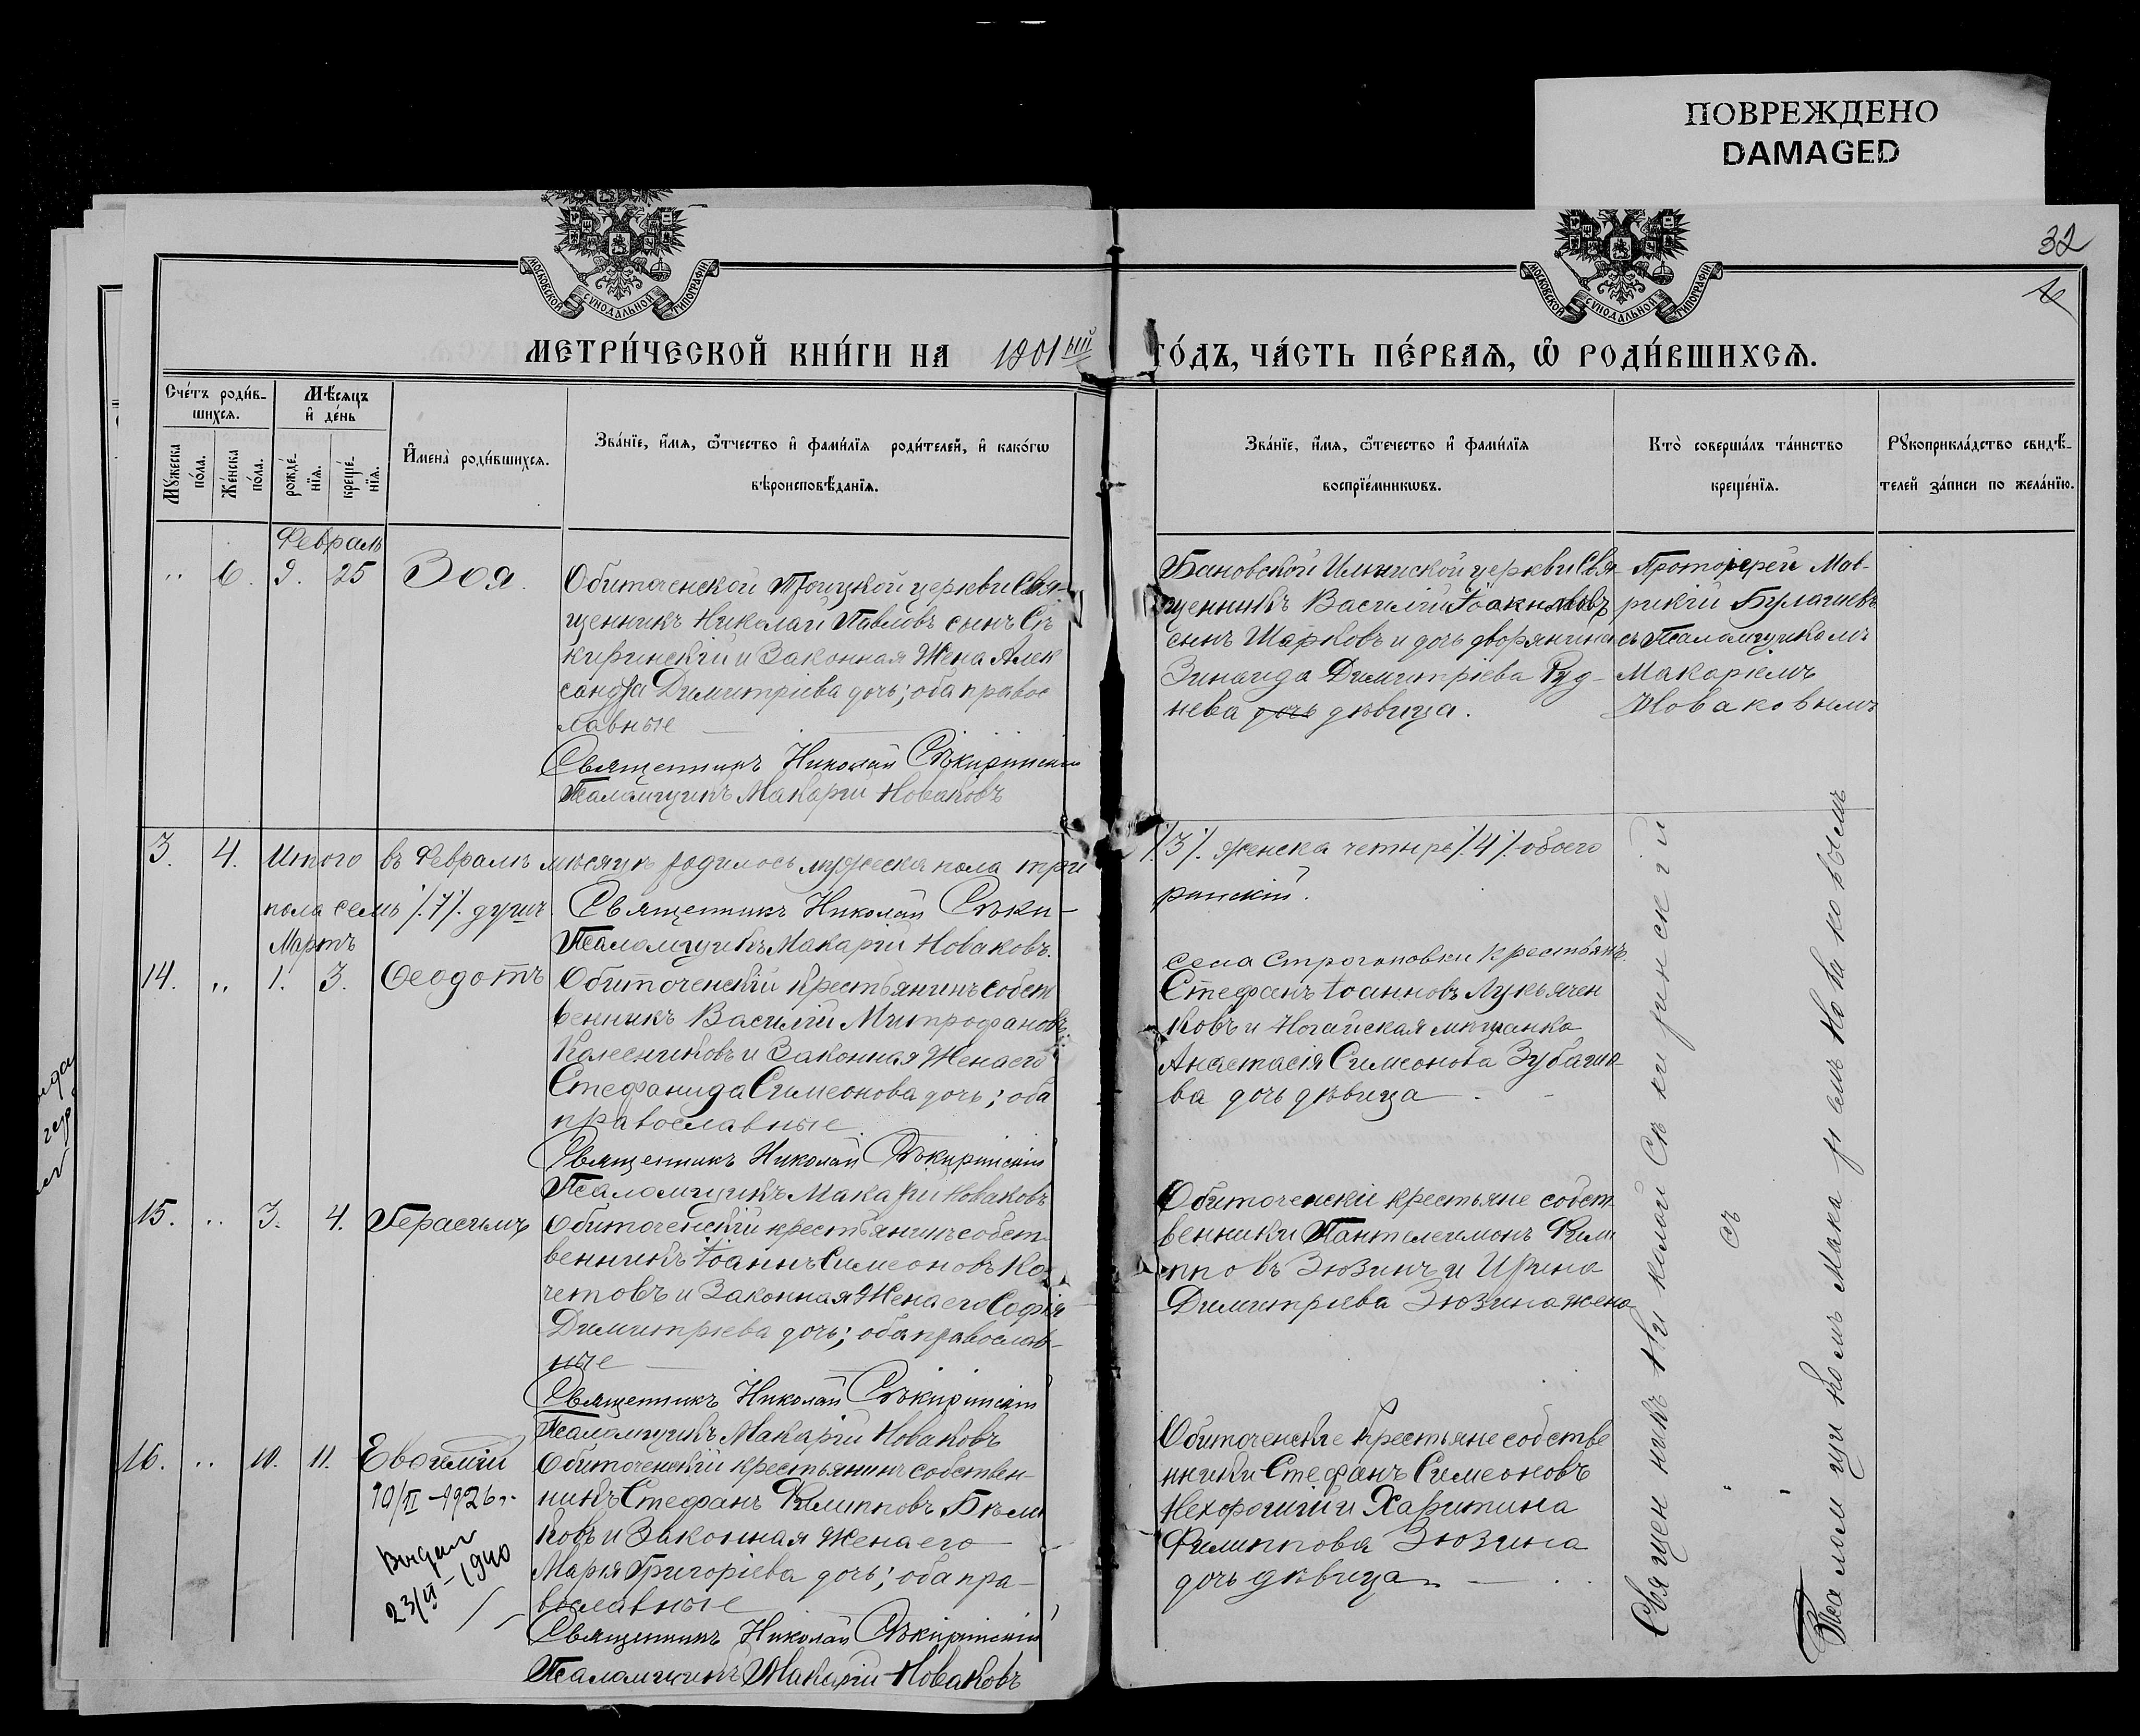 ПОВРЕЖДЕНО
DAMAGED
32
МОСКОВСКОЙ СѴНОДАЛЬНОЙ ТИПОГРАФІИ.
МОСКОВСКОЙ СѴНОДАЛЬНОЙ ТИПОГРАФІИ.
МЕТРИ́ЧЕСКОЙ КНИ́ГИ НА 1901ый ГО́ДЪ, ЧА́СТЬ ПЕ́РВАѦ, Ѡ РОДИ́ВШИХСѦ.
Сче́тъ роди́в-
шихсѧ.
Мꙋ́жеска
по́ла.
Же́нска
по́ла.
Мѣ́сѧцъ
и҆ де́нь
рожде́-
нїѧ.
креще́-
нїѧ.
И҆мена̀ роди́вшихсѧ.
Зва́нїе, и҆́мѧ, ѻ҆́тчество и҆ фами́лїѧ роди́телей, и҆ како́гѡ
вѣроисповѣ́данїѧ.
Зва́нїе, и҆́мѧ, ѻ҆́течество и҆ фами́лїѧ
воспрїе́мникѡвъ.
Кто̀ соверша́лъ та́инство
креще́нїѧ.
Рꙋкоприкла́дство свидѣ́-
телей за́писи по жела́нїю.
Февраль
" 6. 9. 25 Зоя.
Обиточенской Троицкой церкви Свя-
щенникъ Николай Павловъ сынъ Сѣ
киринскій и Законная Жена Алек
сандра Димитріева дочь; оба правос
лавные
Священникъ Николай Сѣкиринскій
Псаломщикъ Макарій Новаковъ
Бановской Ильинской церкви Свя-
щенникъ Василій Іоакимовъ
сынъ Шарковъ и дочь дворянина
Зинаида Димитріева Руд-
нева дочь дѣвица.
Протоіерей Мав-
рикій Булашевъ
съ Псаломщикомъ
Макаріемъ
Новаковымъ
3. 4. Итого въ Февралѣ мѣсяцѣ родилось мужеска пола три
/3/. женска четыре /.4/. обоего
пола семь /.7/. душъ. Священникъ Николай Сѣки-
ринскій.
Псаломщикъ Макарій Новаковъ.
Мартъ
14. " 1. 3. Ѳеодотъ
Обиточенскій крестьянинъ собст
венникъ Василій Митрофановъ
Колесниковъ и Законная Жена его
Стефанида Симеонова дочь; оба
православные.
Священникъ Николай Сѣкиринскій
Псаломщикъ Макарій Новаковъ
села Строгоновки крестьянъ
Стефанъ Іоанновъ Лукьячен
ковъ и Ногайская мѣщанка
Анастасія Симеонова Зубаше-
ва дочь дѣвица
15. " 3. 4. Герасимъ
Обиточенскій крестьянинъ собст
венникъ Іоаннъ Симеоновъ Ко-
четовъ и Законная Жена его Софія
Димитріева дочь; оба православ-
ные
Священникъ Николай Сѣкиринскій
Псаломщикъ Макарій Новаковъ
Обиточенскіе крестьяне собст-
венники Пантелеимонъ Фили
пповъ Зюзинъ и Ирина
Димитріева Зюзина жена
16. " 10. 11. Евѳимій
10/II-1926г.
23/VI-1940
Обиточенскій крестьянинъ собствен-
никъ Стефанъ Филипповъ Бѣли
ковъ и Законная Жена его
Марія Григоріева дочь; оба пра-
вославные
Священникъ Николай Сѣкиринскій
Псаломщикъ Макарій Новаковъ
Обиточенскіе Крестьяне собстве
нники Стефанъ Симеоновъ
Нехорошій и Харитина
Филиппова Зюзина
дочь дѣвица
Священникъ Николай Сѣкиринскій
съ
Псаломщикомъ Макаріемъ Новаковымъ